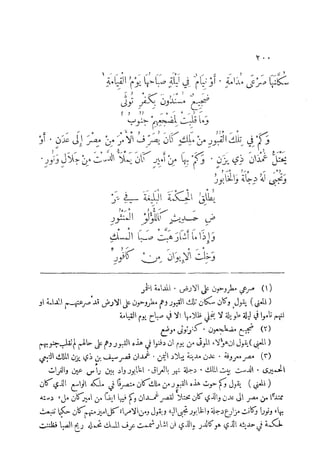 ٢٠٠
سكانها صرعى مدامة . أو نيام في ليلة صباحها يوم القيامة
ضجيع مسندون بكفر نوثى
وما قلبت لمضجعهم جنوب
وكم في تلك القبور من ملك كان يصرف الأمر من مصر إلى عدن . أو
يحتل غمدان ذي يزن . وكم بها من أمير كان يملأ الدست من جلال ونور .
وتجبى له دجلة والخابور
يطلق الحكمة البليغة في نثر
ض حديث كاللؤلؤ المنثور
وإذا ما أشار هبت صبا المسك
وخلت الإيوان من كافور
(١) صرعى مطروحون على الارض . المدامة الخمر
(المعنى) يقول وكان سكان تلك القبور وهم مطروحون على الارض قد صرعتهم المدامة او
انهم ناموا في ليلة طويلة لا ينجلي ظلامها الا في صباح يوم القيامة
(٢) ضجيع مضطجعون . كوثى موضع
(المعنى) يقول ان هؤلاء الموتى من يوم ان دفنوا في هذه القبور وهم على حالهم لم تقلب جنوبهم
(٣) مصر معروفة . عدن مدينة ببلاد اليمن . غمدان قصر سيف بن ذي يزن الملك التبعي
الحميري . الدست بيت الملك . دجلة نهر بالعراق . الخابور واد بين رأس عين والفرات
(المعنى) يقول وكم حوت هذه القبور من ملك كان متصرفا في ملكه الواسع الذي كان
ممتدا من مصر الى عدن والذي كان محتلا لقصر غمدان وكم فيها ايضا من امير كان ملء دسته
بهاء ونورا وكانت مزارع دجلة والخابور تجبى اليه ويقول ومن الامراء كل امير منهم كان حكيما تنبعث
الحكمة في حديثه الذي هو كالدر والذي ان اشار شممت عرف المسك تحمله ريح الصبا فظننت